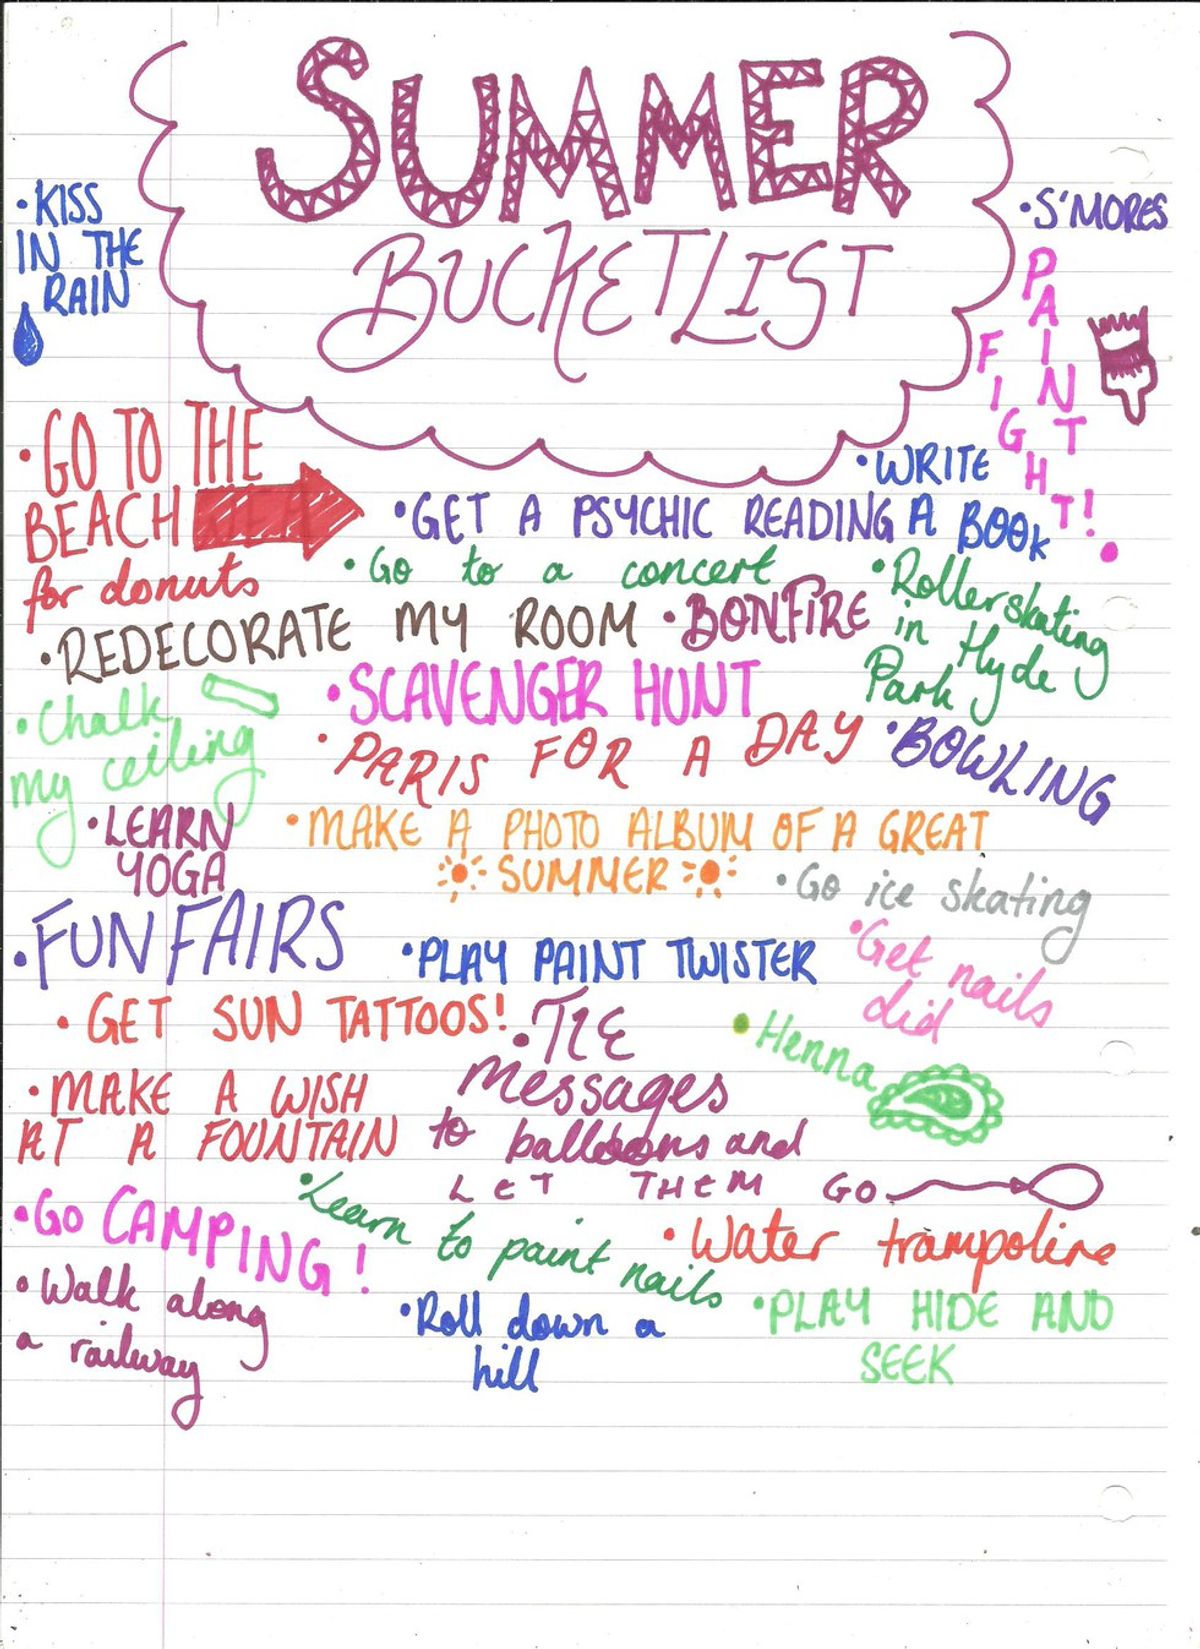 SUMMER
BUCKETLIST
•KISS
IN THE
RAIN
•S'MORES
PAINT
FIGHT!
•GO TO THE
BEACH
for donuts
•WRITE
A BOOK
•GET A PSYCHIC READING
•Go to a concert
•Rollerskating
in Hyde
Park
•REDECORATE MY ROOM
•BONFIRE
•Chalk
my ceiling
•SCAVENGER HUNT
•PARIS FOR A DAY
•BOWLING
•LEARN
YOGA
•MAKE A PHOTO ALBUM OF A GREAT
SUMMER
•Go ice skating
•FUNFAIRS
•PLAY PAINT TWISTER
•Get nails
did
•GET SUN TATTOOS!
•TIE
messages
to balloons and
LET THEM GO
•Henna
•MAKE A WISH
AT A FOUNTAIN
•GO CAMPING!
•Learn to paint nails
•Water trampoline
•Walk along
a railway
•Roll down a
hill
•PLAY HIDE AND
SEEK